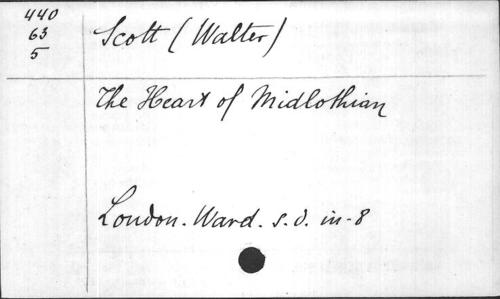 440
63
5
Scott (Walter)
The Heart of Midlothian
London. Ward. s.d. in-8